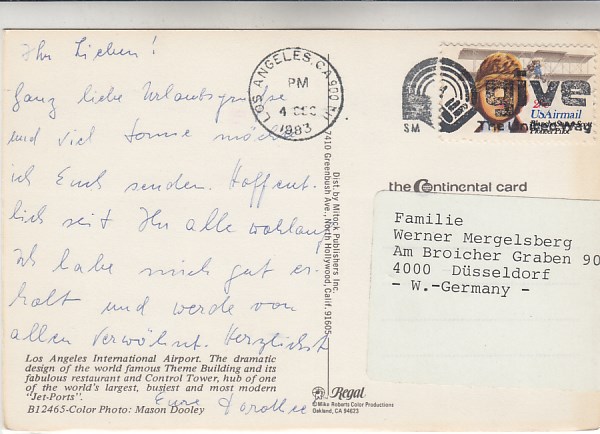 Ihr Lieben!
Ganz liebe Urlaubsgrüsse
und viel Sonne möchte
ich Euch senden. Hoffent-
lich seit Ihr alle wohlauf
ich habe mich gut er-
holt und werde von
allen verwöhnt. Herzlichst
Eure Dorothee
Los Angeles International Airport. The dramatic
design of the world famous Theme Building and its
fabulous restaurant and Control Tower, hub of one
of the world's largest, busiest and most modern
"Jet-Ports".
B12465-Color Photo: Mason Dooley
LOS ANGELES, CA 900
PM
4 DEC
1983
SM
give
The United Way
USAirmail
Dist. by Mitock Publishers Inc.
7410 Greenbush Ave., North Hollywood, Calif. 91605
the Continental card
Familie
Werner Mergelsberg
Am Broicher Graben 90
4000 Düsseldorf
- W.-Germany -
Regal
©Mike Roberts Color Productions
Oakland, CA 94623